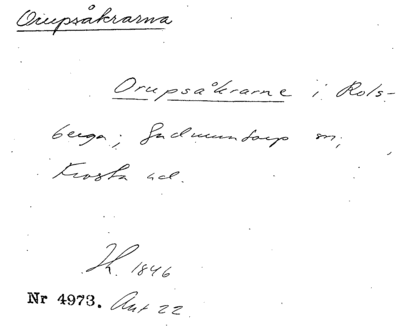 Orupsåkrarna
Orupsåkrarne i Rols-
berga; Gudmuntorp sn;
Frosta hd.
H. 1846
Nr 4973. Akt 22